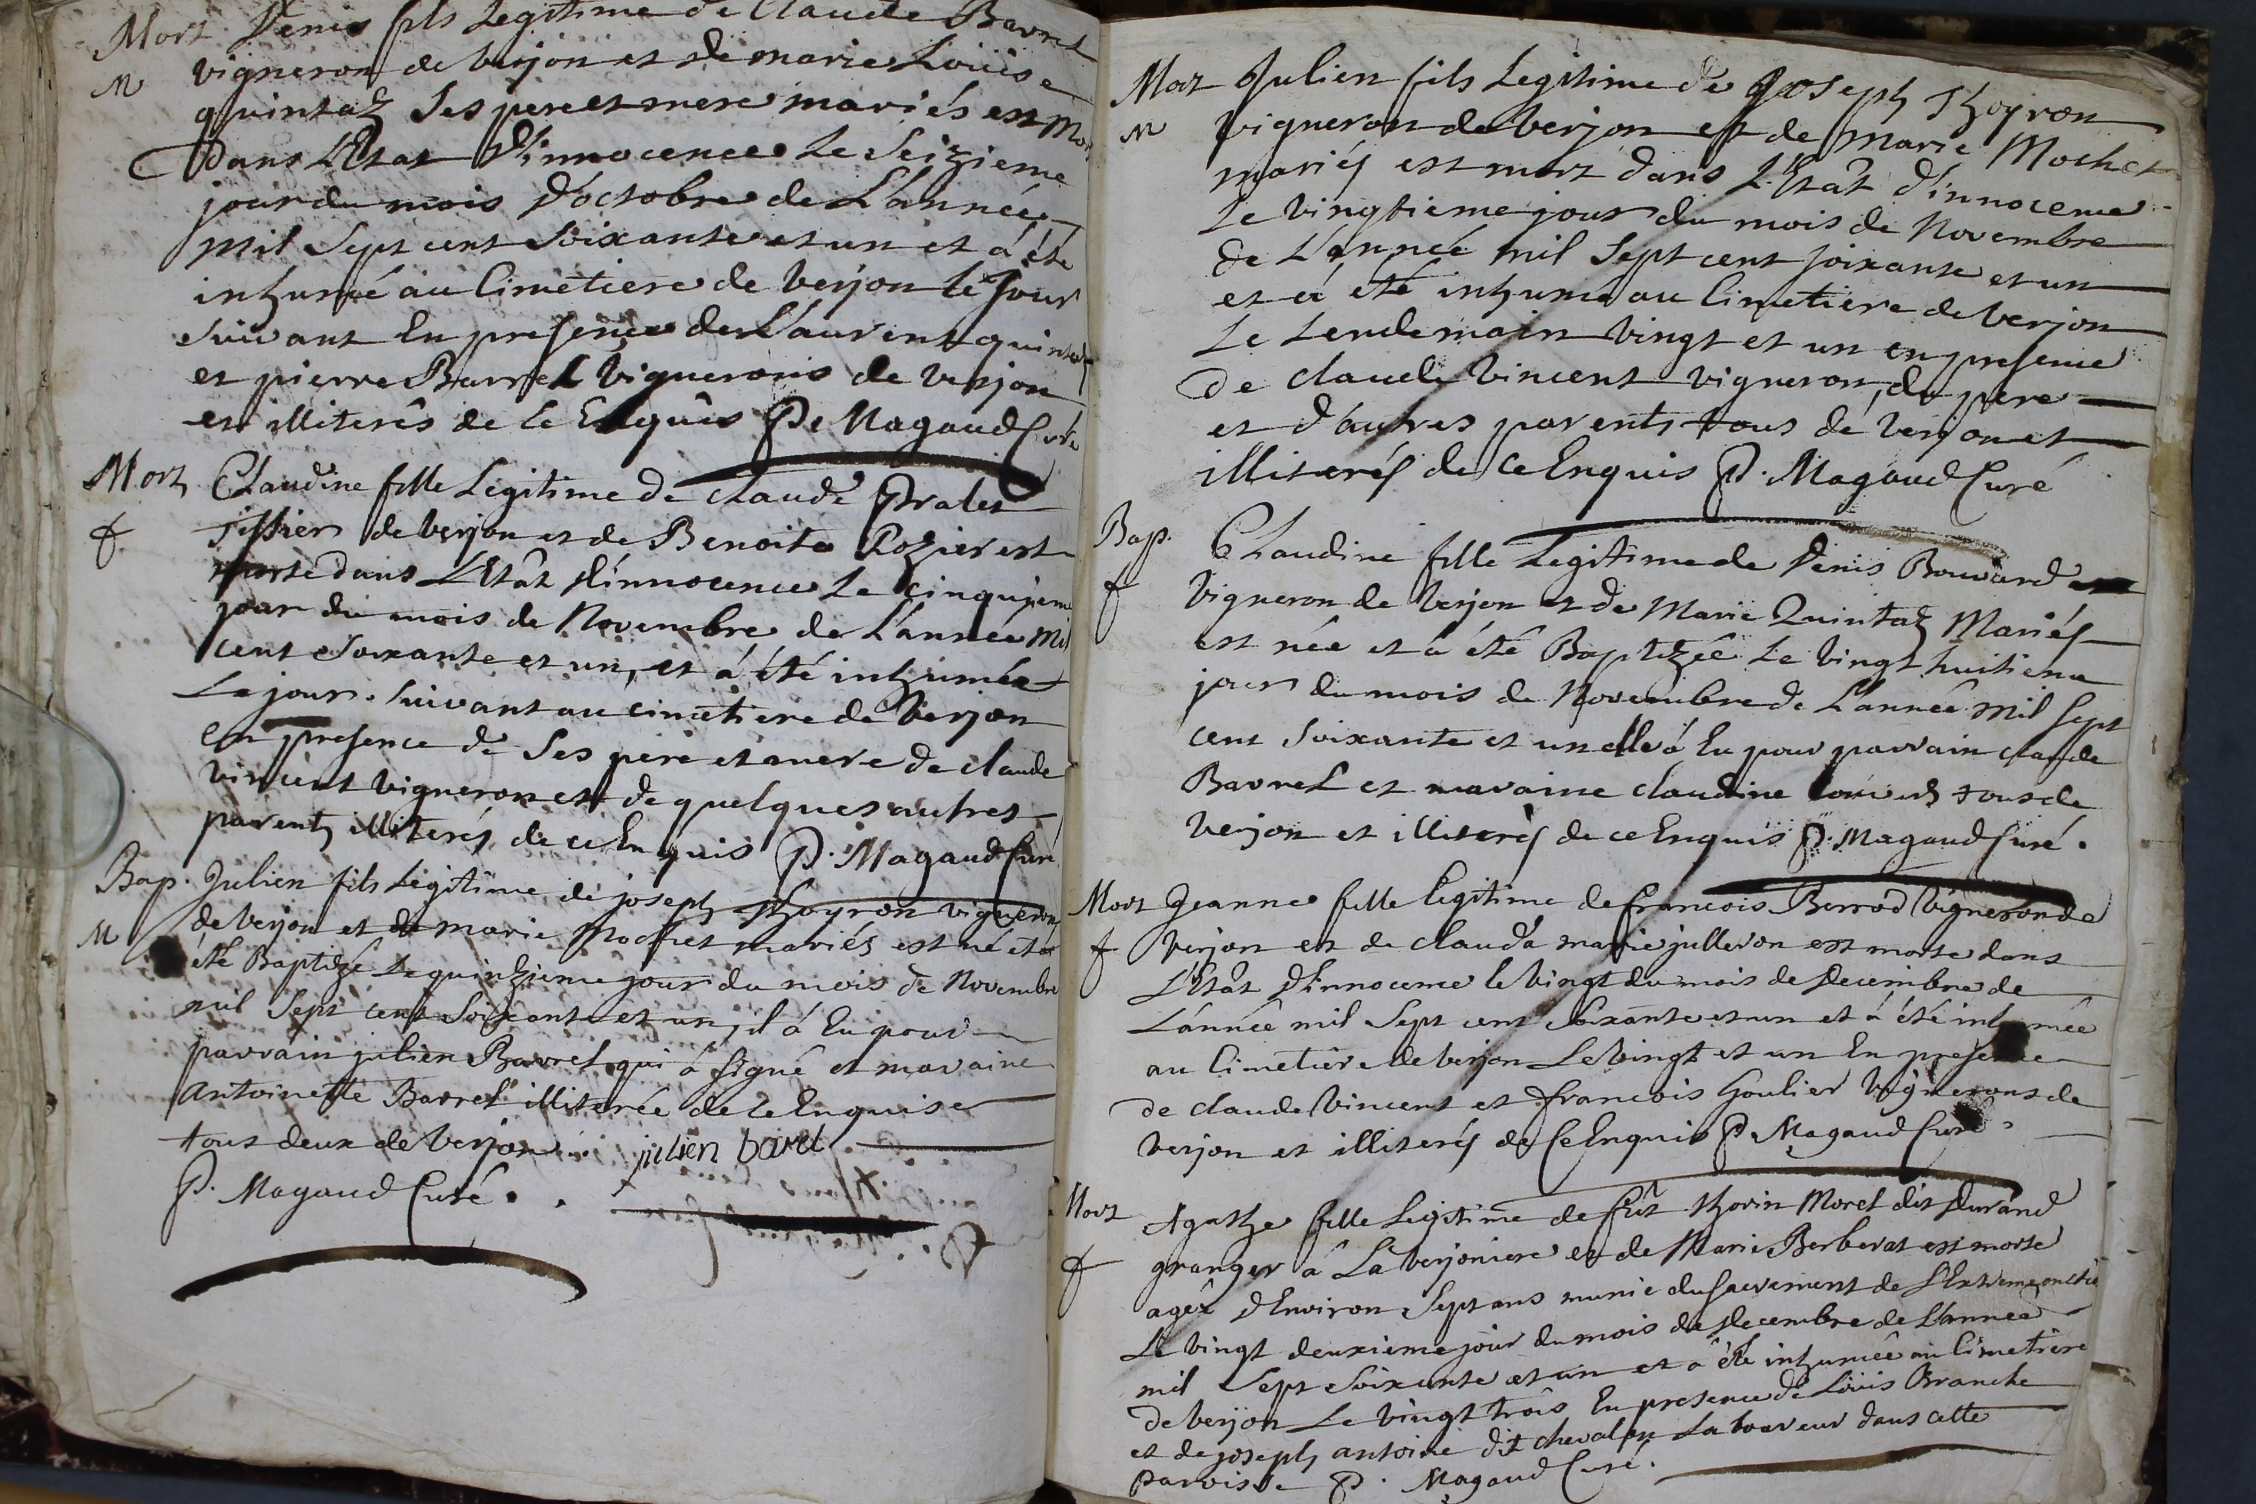 Mort Denis fils Legitime de Claude Barret
M vigneron de verjon et de marie Louise
quintaz ses pere et mere mariés est Mort
dans L'Etat d'innocence Le Seizieme
jour du mois d'octobre de L'année
mil Sept cent Soixante et un et á été
inhumé au Cimetiere de verjon le jour
suivant En presence de Laurent quintaz
et pierre Barret vignerons de verjon
et illiterés de ce Enquis P. Magaud Curé
Mort Claudine fille Legitime de claude Bralet
f Tissier de verjon et de Benoite Rozier est
morte dans L'Etât d'innocence Le cinquieme
jour du mois de Novembre de L'année mil
cent soixante et un, et á été inhumée
Le jour suivant au cimetiere de Verjon
en presence de Ses pere et mere de claude
vincent vigneron et de quelques autres
parents illiterés de ce Enquis P. Magaud Curé
Bap. Julien fils Légitime de joseph Thoyron vigneron
M de verjon et de marie Mochet mariés est né et a
été Baptizé Le quinzieme jour du mois de Novembre
mil Sept cent Soixante et un, il á Eu pour
parrain julien Barret qui á signé et maraine
Antoinette Barret illiterée de ce Enquise
tous deux de verjon julien barel
P. Magaud Curé.
Mort Julien fils Legitime de Joseph Thoyron
M vigneron de Verjon et de Marie Mochet
mariés est mort dans L'Etât d'innocence
Le vingtieme jour du mois de Novembre
de L'année mil Sept cent soixante et un
et á été inhumé au Cimetiere de verjon
Le Lendemain vingt et un en presence
de claude vincent vigneron, du pere
et d'autres parents tous de verjon et
illiterés de ce Enquis P. Magaud Curé
Bap. Claudine fille Legitime de Denis Bouvard
f vigneron de verjon et de Marie Quintaz Mariés
est née et á été Baptizée Le vingt huitieme
jour du mois de Novembre de L'année mil Sept
cent Soixante et un elle á Eu pour parrain claude
Barret et maraine claudine tous de
verjon et illiterés de ce Enquis P. Magaud Curé.
Mort Jeanne fille legitime de francois Berrod vigneron de
f verjon et de clauda marie julleron est morte dans
L'Etât d'innocence le vingt du mois de Decembre de
L'année mil Sept cent Soixante et un et á été inhumée
au Cimetiere de verjon Le vingt et un En presence
de claude vincent et francois Goulier vignerons de
verjon et illiterés de Ce Enquis P. Magaud Curé.
Mort Agathe fille Legitime de feu Thorin Morel dit Durand
f granger á La verjoniere et de Marie Berberat est morte
agée d'Environ Sept ans munie du sacrement de L'Extreme onction
Le vingt deuxieme jour du mois de Decembre de L'année
mil Sept Soixante et un et á été inhumée au Cimetiere
de verjon Le vingt trois En presence de Loüis Branche
et de joseph antoine dit chevalier Laboureur dans cette
Parroisse P. Magaud Curé.